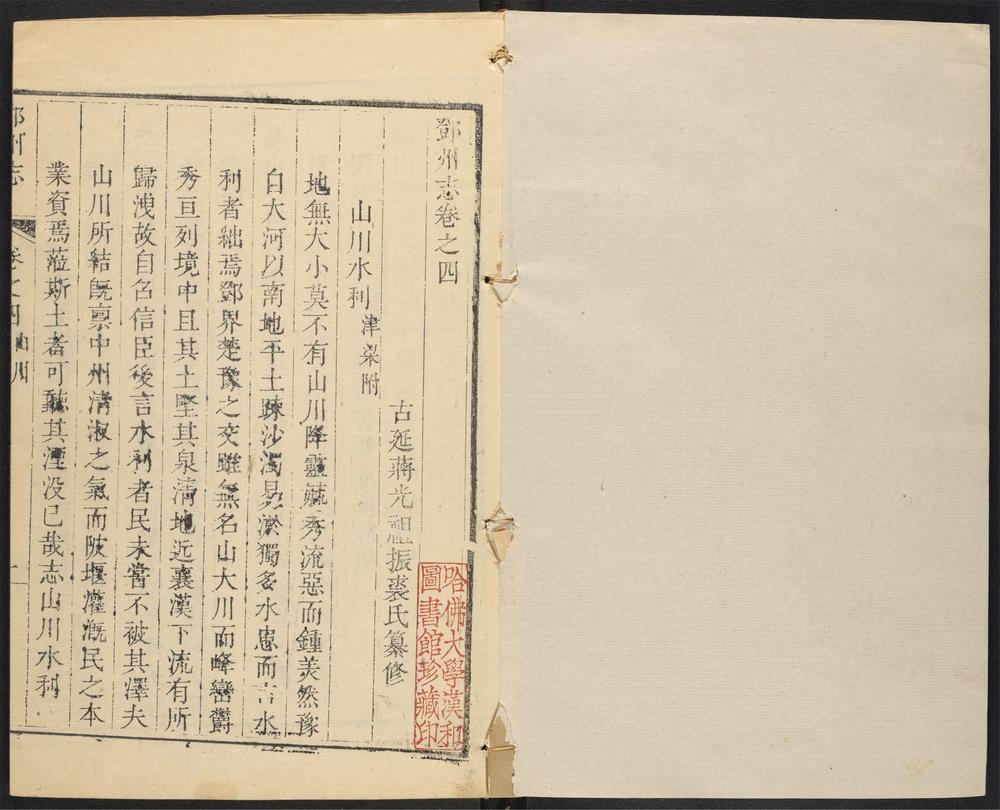 鄧州志卷之四
古延蔣光祖振裘氏纂修
山川水利 津梁附
地無大小莫不有山川降靈毓秀流惡而鍾美然豫
自大河以南地平土踈沙濁易淤獨多水患而言水
利者絀焉鄧界楚豫之交雖無名山大川而峰巒欝
秀亘列境中且其土堅其泉清地近襄漢下流有所
歸洩故自召信臣後言水利者民未嘗不被其澤夫
山川所結旣禀中州清淑之氣而陂堰灌漑民之本
業資焉蒞斯土者可聽其湮没已哉志山川水利
鄧州志 卷之四 山川 一
哈佛大學漢和
圖書館珍藏印